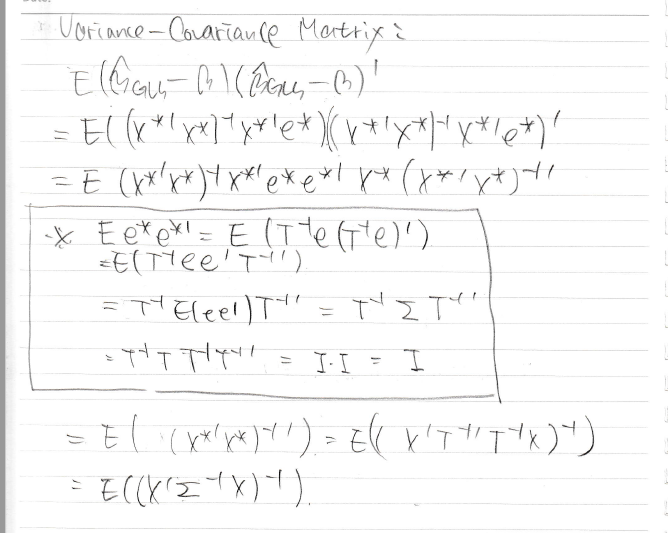 Variance-Covariance Matrix:
E(β̂GLS - β)(β̂GLS - β)'
= E((X*'X*)⁻¹X*'e*)((X*'X*)⁻¹X*'e*)'
= E (X*'X*)⁻¹X*'e*e*'X*(X*'X*)⁻¹'
* Ee*e*' = E(T⁻¹e(T⁻¹e)')
=E(T⁻¹ee'T⁻¹')
= T⁻¹E(ee')T⁻¹' = T⁻¹ΣT⁻¹'
= T⁻¹TT⁻¹T⁻¹' = I·I = I
= E( (X*'X*)⁻¹') = E((X'T⁻¹'T⁻¹X)⁻¹)
= E((X'Σ⁻¹X)⁻¹).